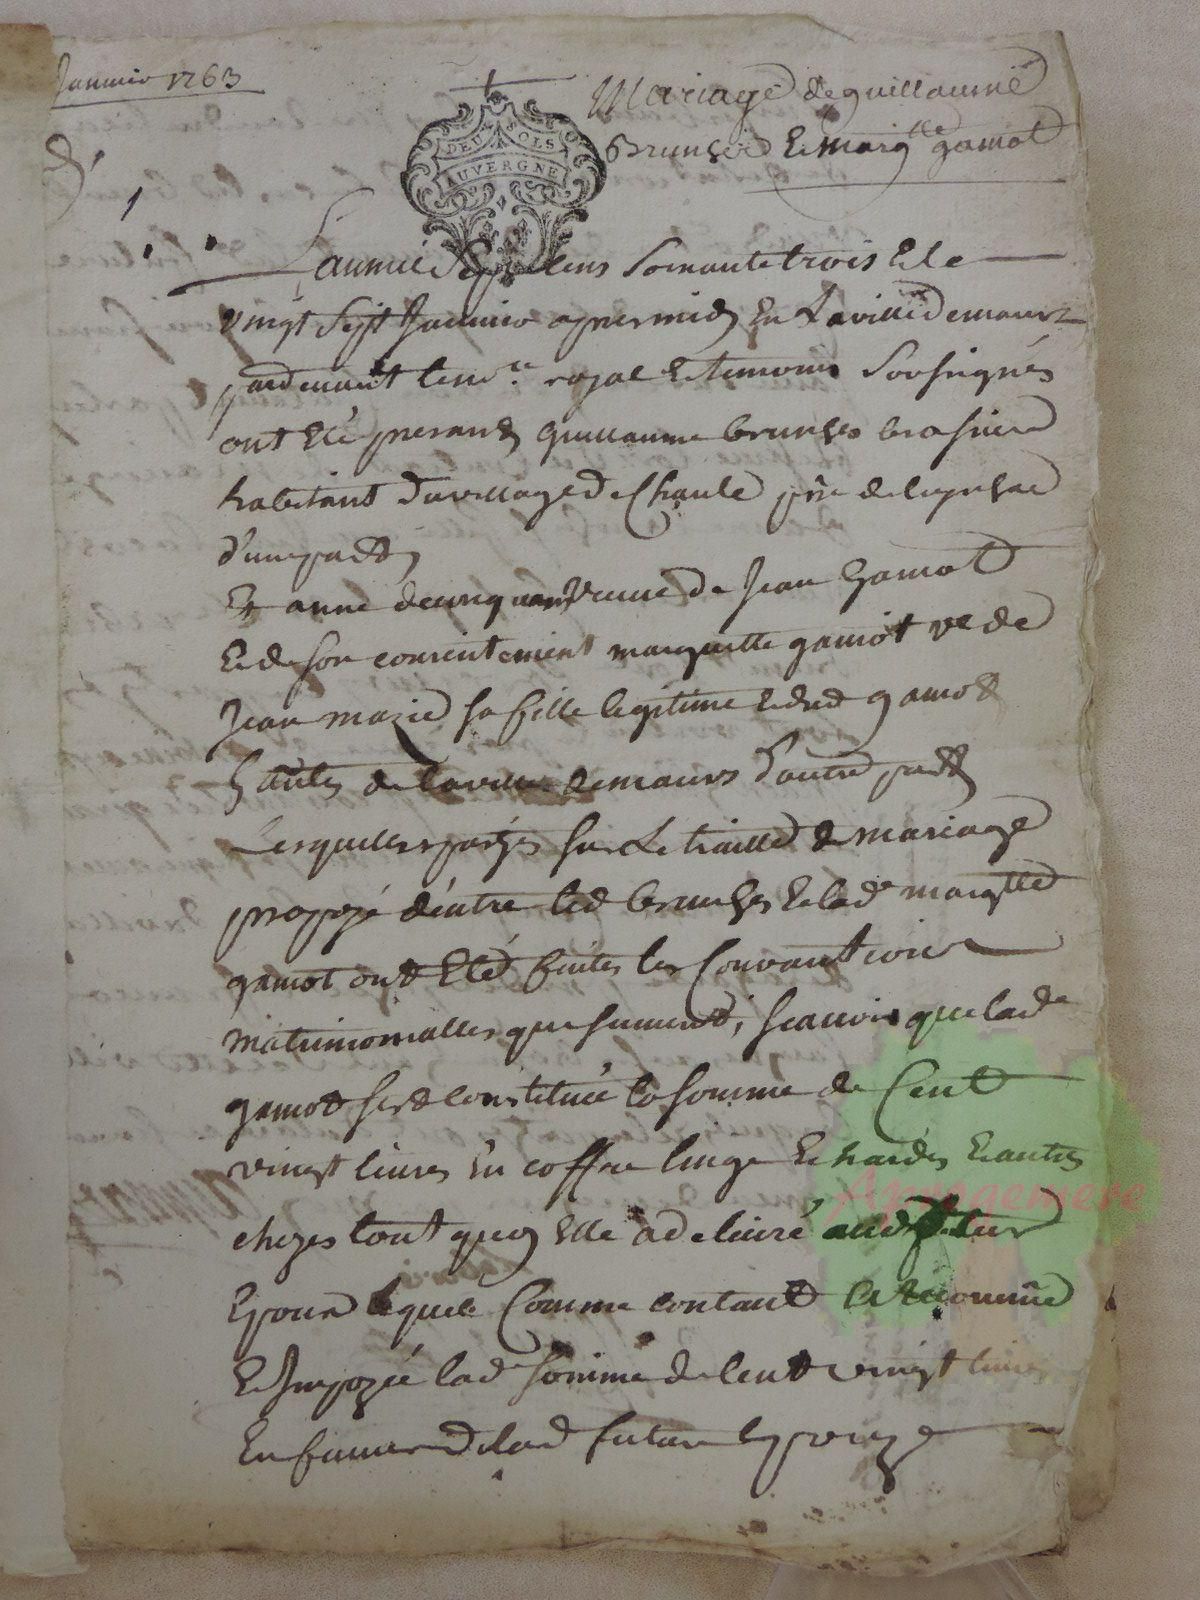 Janvier 1763
Mariage de guillaume
Brunhes Et marg.tte gamot
DEUX SOLS
AUVERGNE
L'annee Sept Cens Soixante trois Et le
vingt Sept Janvier apres midy En La ville de maurs
pardevant le no.re royal Et temoins Soussignés
ont Eté presants guillaume brunhes brassier
habitant du village de Chaule p.sse de
d'une part
Et anne veuve de Jean Gamot
Et de son consentement marguitte gamot v.e de
Jean mazic sa fille legitime Et dud gamot
h'antes de la ville de maurs D'autre part
Lesquelles partyes sur Le traitté de mariage
propozé d'entre led brunhes Et lad.e margtte
gamot ont Eté faites les Convantions
matrimonialles que suivent, scavoir que lad.e
gamot sest constituée la somme de Cent
vingt livres En coffre linge Et hardes Et autres
chozes tout quoy Elle a delivré aud futur
Epoux lequel Comme contant la reconnue
Et Impozée lad somme de Cent vingt livres
En faveur de lad future Epouze
Aprogemere